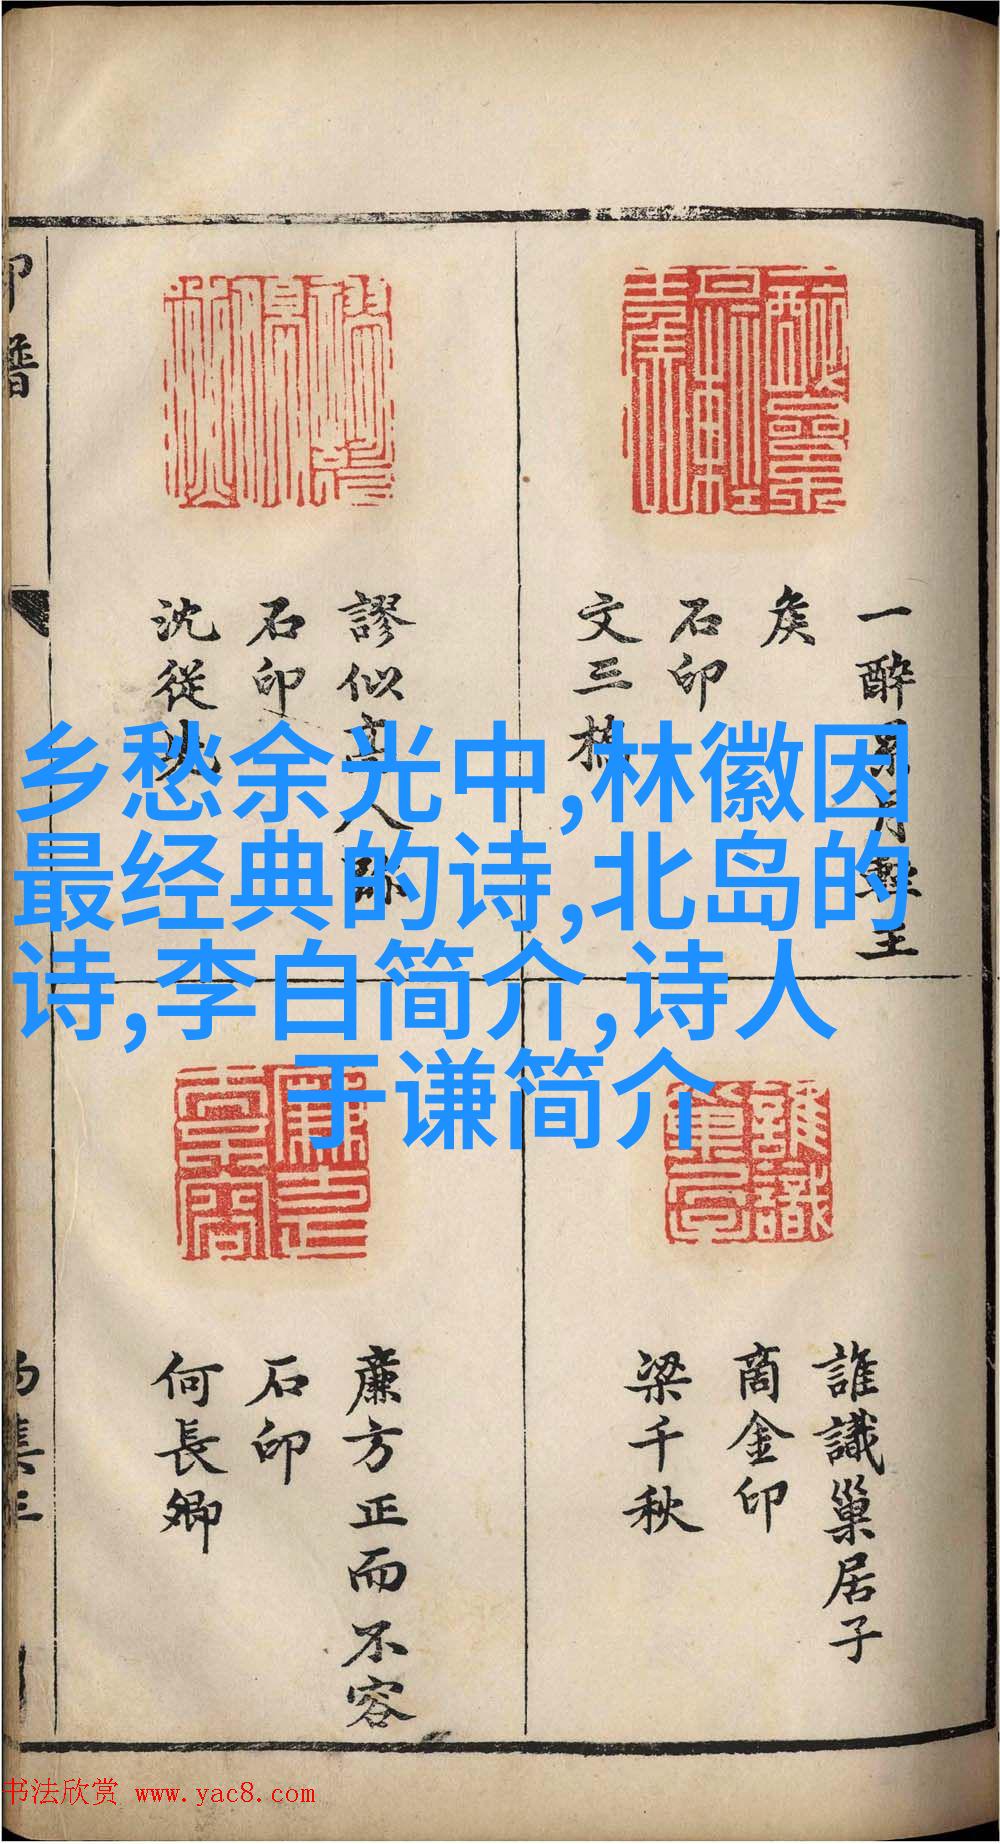 乡愁余光中,林徽因
最经典的诗,北岛的
诗,李白简介,诗人
于谦简介
一醉累月輕王
矦
石印
文三橋
謬似高人
石印
沈從
誰識巢居子
商金印
梁千秋
廉方正而不容
石印
何長卿
印譜
书法欣赏 www.yac8.com